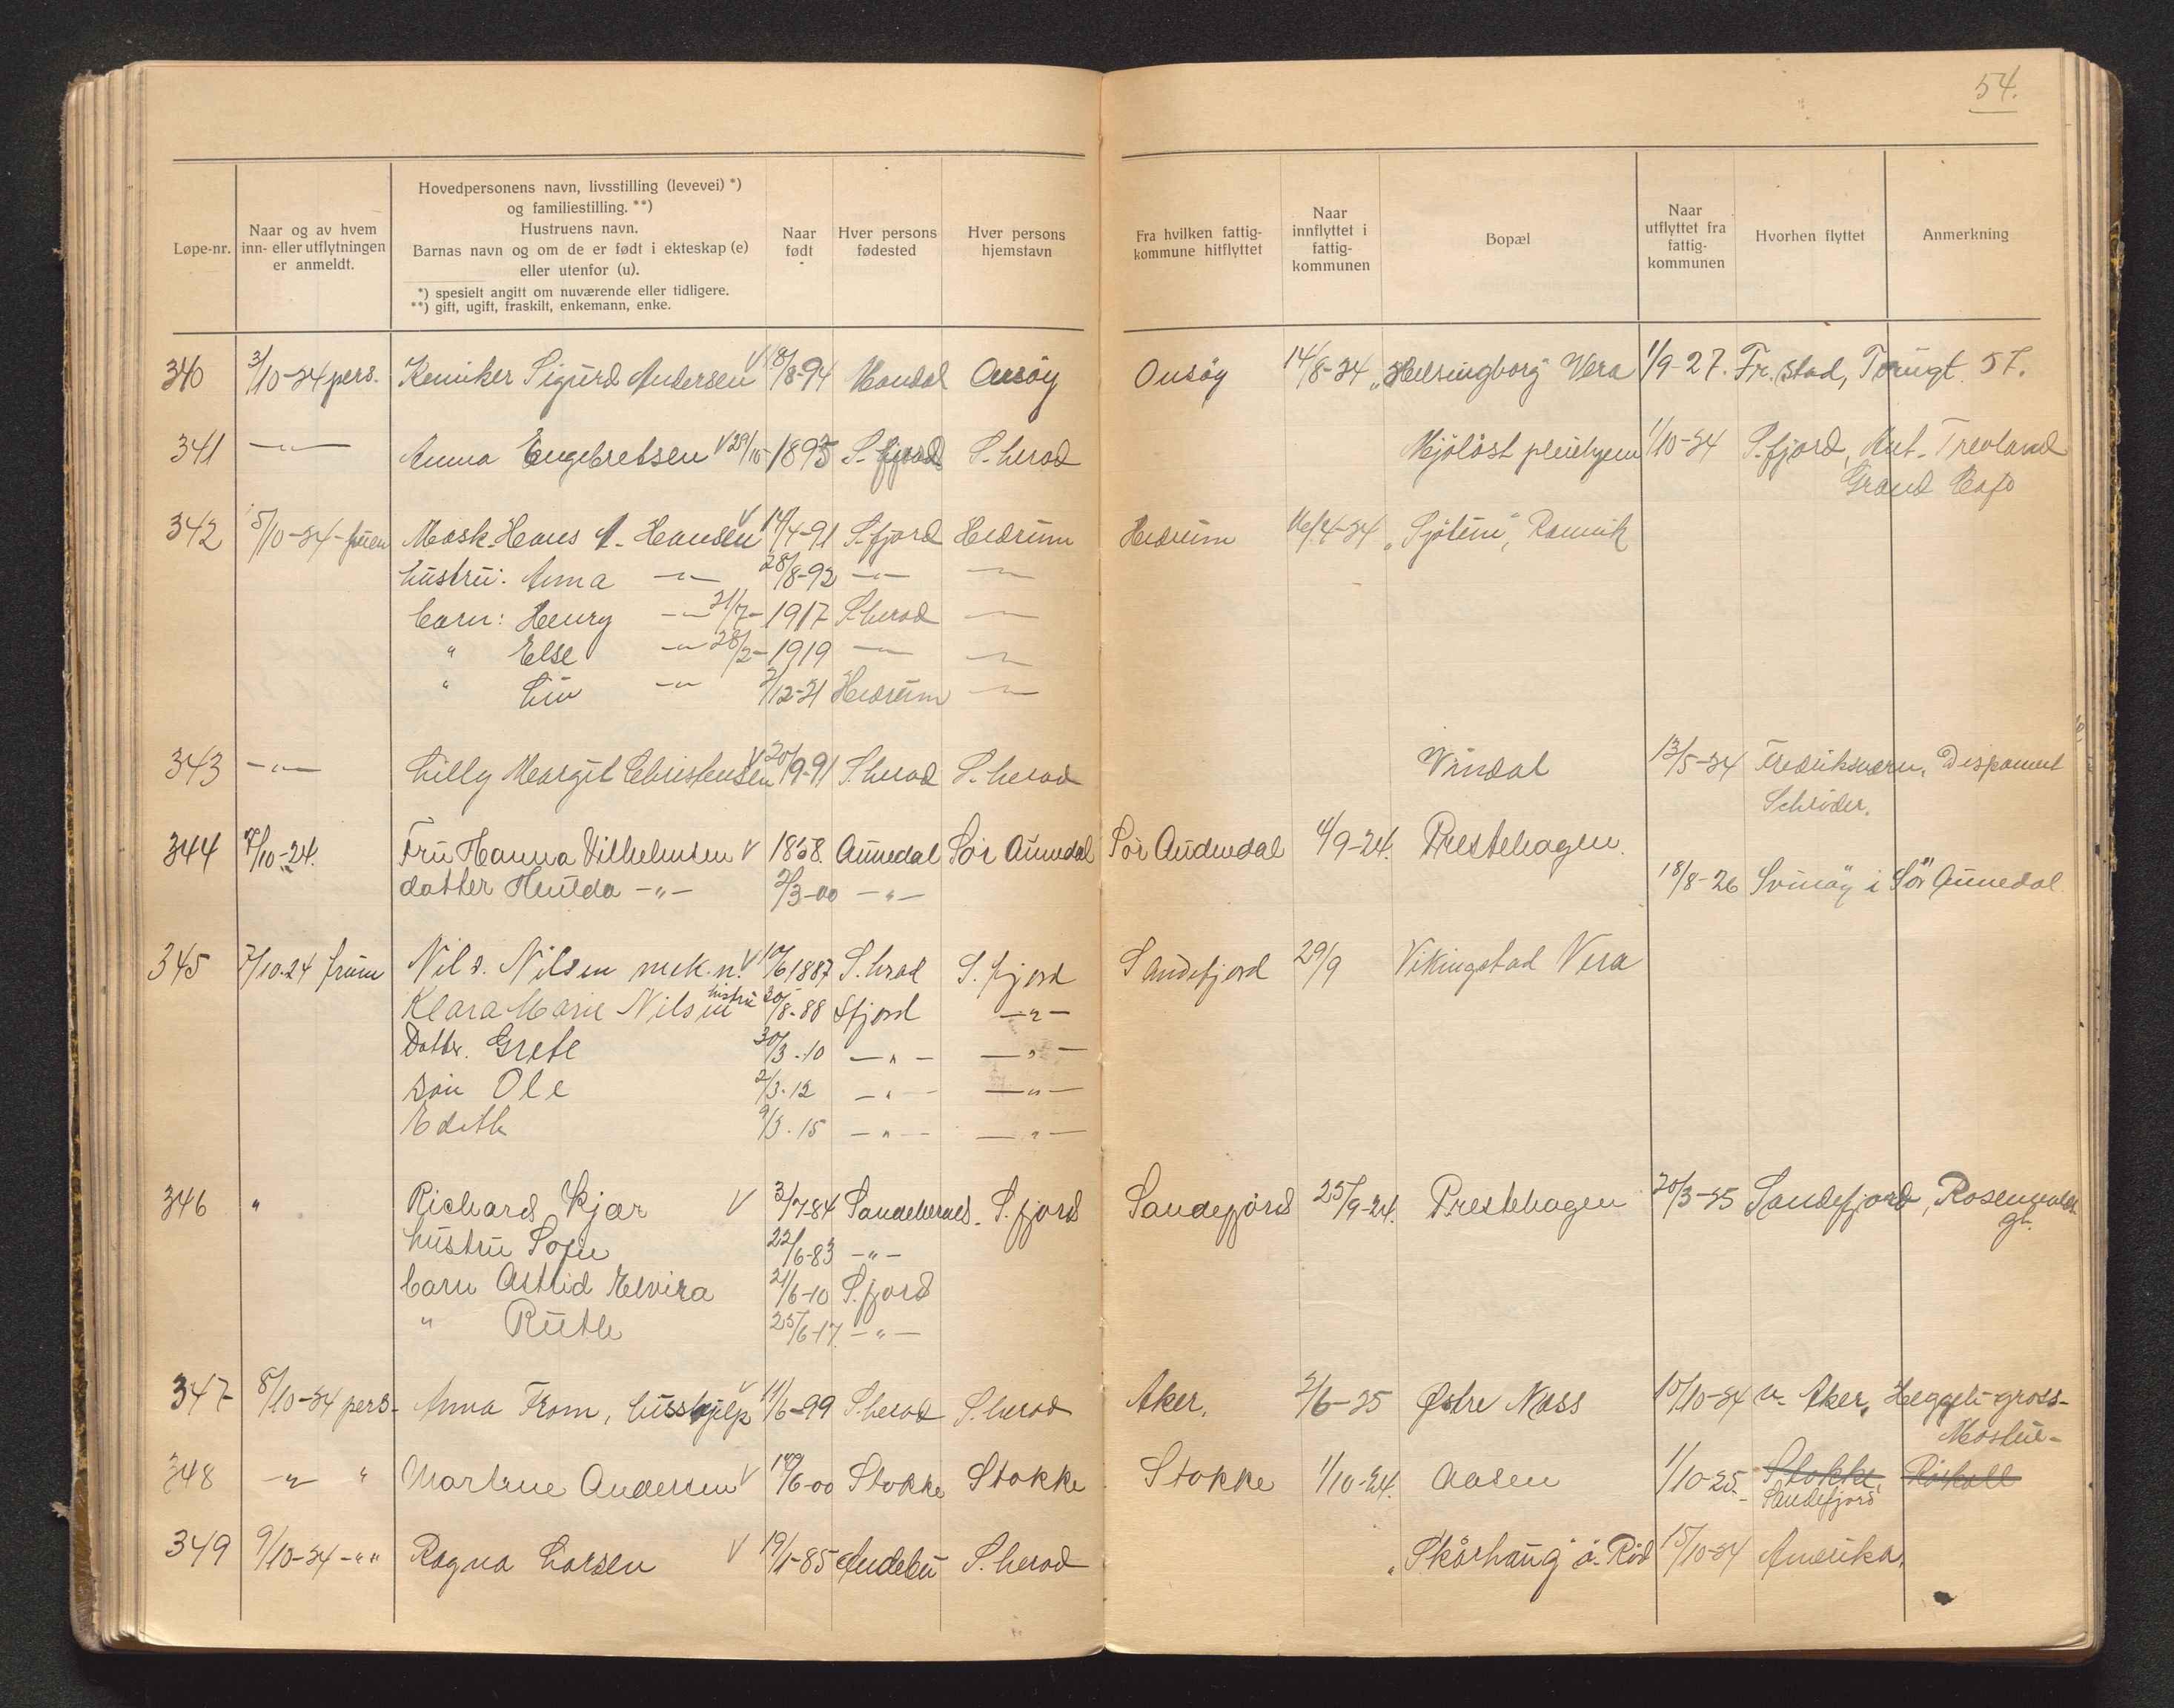 54.
Løpe-nr.
Naar og av hvem
inn- eller utflytningen
er anmeldt.
Hovedpersonens navn, livsstilling (levevei) *)
og familiestilling. **)
Hustruens navn.
Barnas navn og om de er født i ekteskap (e)
eller utenfor (u).
*) spesielt angitt om nuværende eller tidligere.
**) gift, ugift, fraskilt, enkemann, enke.
Naar
født
Hver persons
fødested
Hver persons
hjemstavn
Fra hvilken fattig-
kommune hitflyttet
Naar
innflyttet i
fattig-
kommunen
Bopæl
Naar
utflyttet fra
fattig-
kommunen
Hvorhen flyttet
Anmerkning
340 3/10-24 pers. Kemiker Sigurd Andersen V 18/8-94 Mandal Onsöy Onsöy 14/8-24 „Helsingborg" Vera 1/9-27. Fr.stad, 57.
341 -"- Anna Engebretsen V 29/10-1895 S.fjord S.herad Mjölöst pleiehjem 1/10-24 S.fjord, Ant. Trevland
Grand Cafe
342 5/10-24-fruen Mask. Hans A. Hansen V 14/4-91 S.fjord Hedrum Hedrum 16/4-24 „Sjötun", Ranvik
hustru: Anna -"- 28/8-92 -"- -"-
barn: Henry -"- 21/7-1917 S.herad -"-
" Else -"- 28/2-1919 -"- -"-
" Liv -"- 2/12-21 Hedrum -"-
343 -"- Lilly Margit Christensen V 20/9-91 S.herad S.herad Vindal 13/5-24 Fredriksværn, Disponent
Schröder.
344 7/10-24. Fru Hanna Vilhelmsen V 1858. Aunedal Sör Aunedal Sör Audnedal 4/9-24. Prestehagen.
datter Hulda -"- 2/3-00 -"- 18/8-26 Svinöy i Sör Aunedal.
345 7/10.24 fruen Nils. Nilsen mek. V 10/6 1887 S.hrad S.fjord Sandefjord 29/9 Vikingstad Vera
Klara Marie Nilsen hustru 20/8-88 Sfjord -"-
Datter. Grete 30/3-10 -"- -"-
sön Ole 2/3-12 -"- -"-
Edith 9/3-15 -"- -"-
346 " Richard Kjær V 3/7-84 Sandeherred. S.fjord Sandefjord 25/9-24. Prestehagen 20/3-25 Sandefjord, Rosenvolds
gt.
hustru Sofie 22/6-83 -"-
barn Astrid Elvira 21/6-10 S.fjord
" Ruth 25/6-17. -"-
347 8/10-24 pers. Anna From, hushjelp V 11/6-99 S.herad S.herad Aker. 2/6-25 Østre Næss 15/10-24 V. Aker, Heggeli-gross-
348 -"- " Martine Andersen V 14/6-00 Stokke Stokke Stokke 1/10-24. Aasen 1/10-25. Stokke,
Sandefjord
349 9/10-24-"" Ragna Larsen V 19/1-85 Andebu S.herad „Skörhaug" ö. Röd 15/10-24 Amerika.